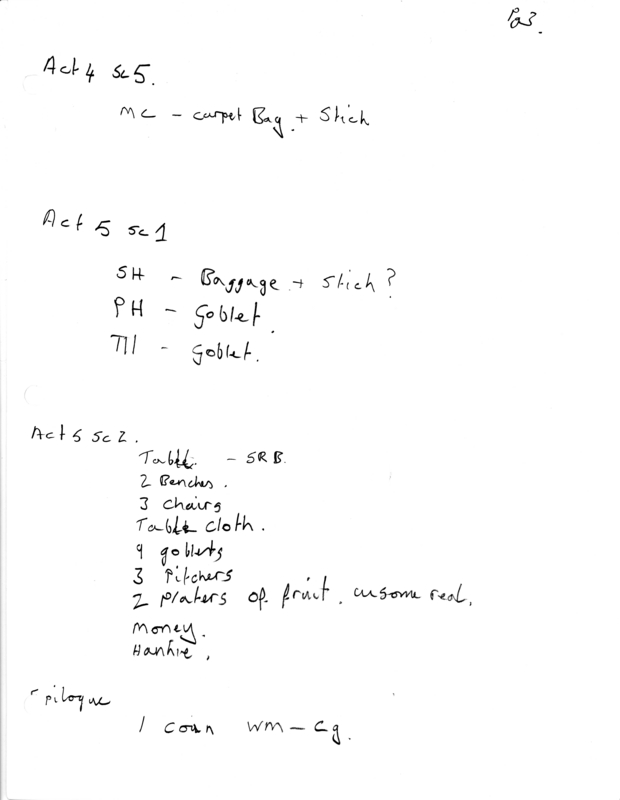 Pg 3.
Act 4 sc 5.
MC - carpet Bag. + Stick
Act 5 sc 1
SH - Baggage + Stick?
PH - Goblet.
TII - Goblet.
Act 5 sc 2.
Table. - SRB.
2 Benches.
3 chairs
Table cloth.
9 goblets
3 Pitchers
2 platers of fruit. some real.
Money.
Hankie.
Epilogue
1 coin WM - Cg.